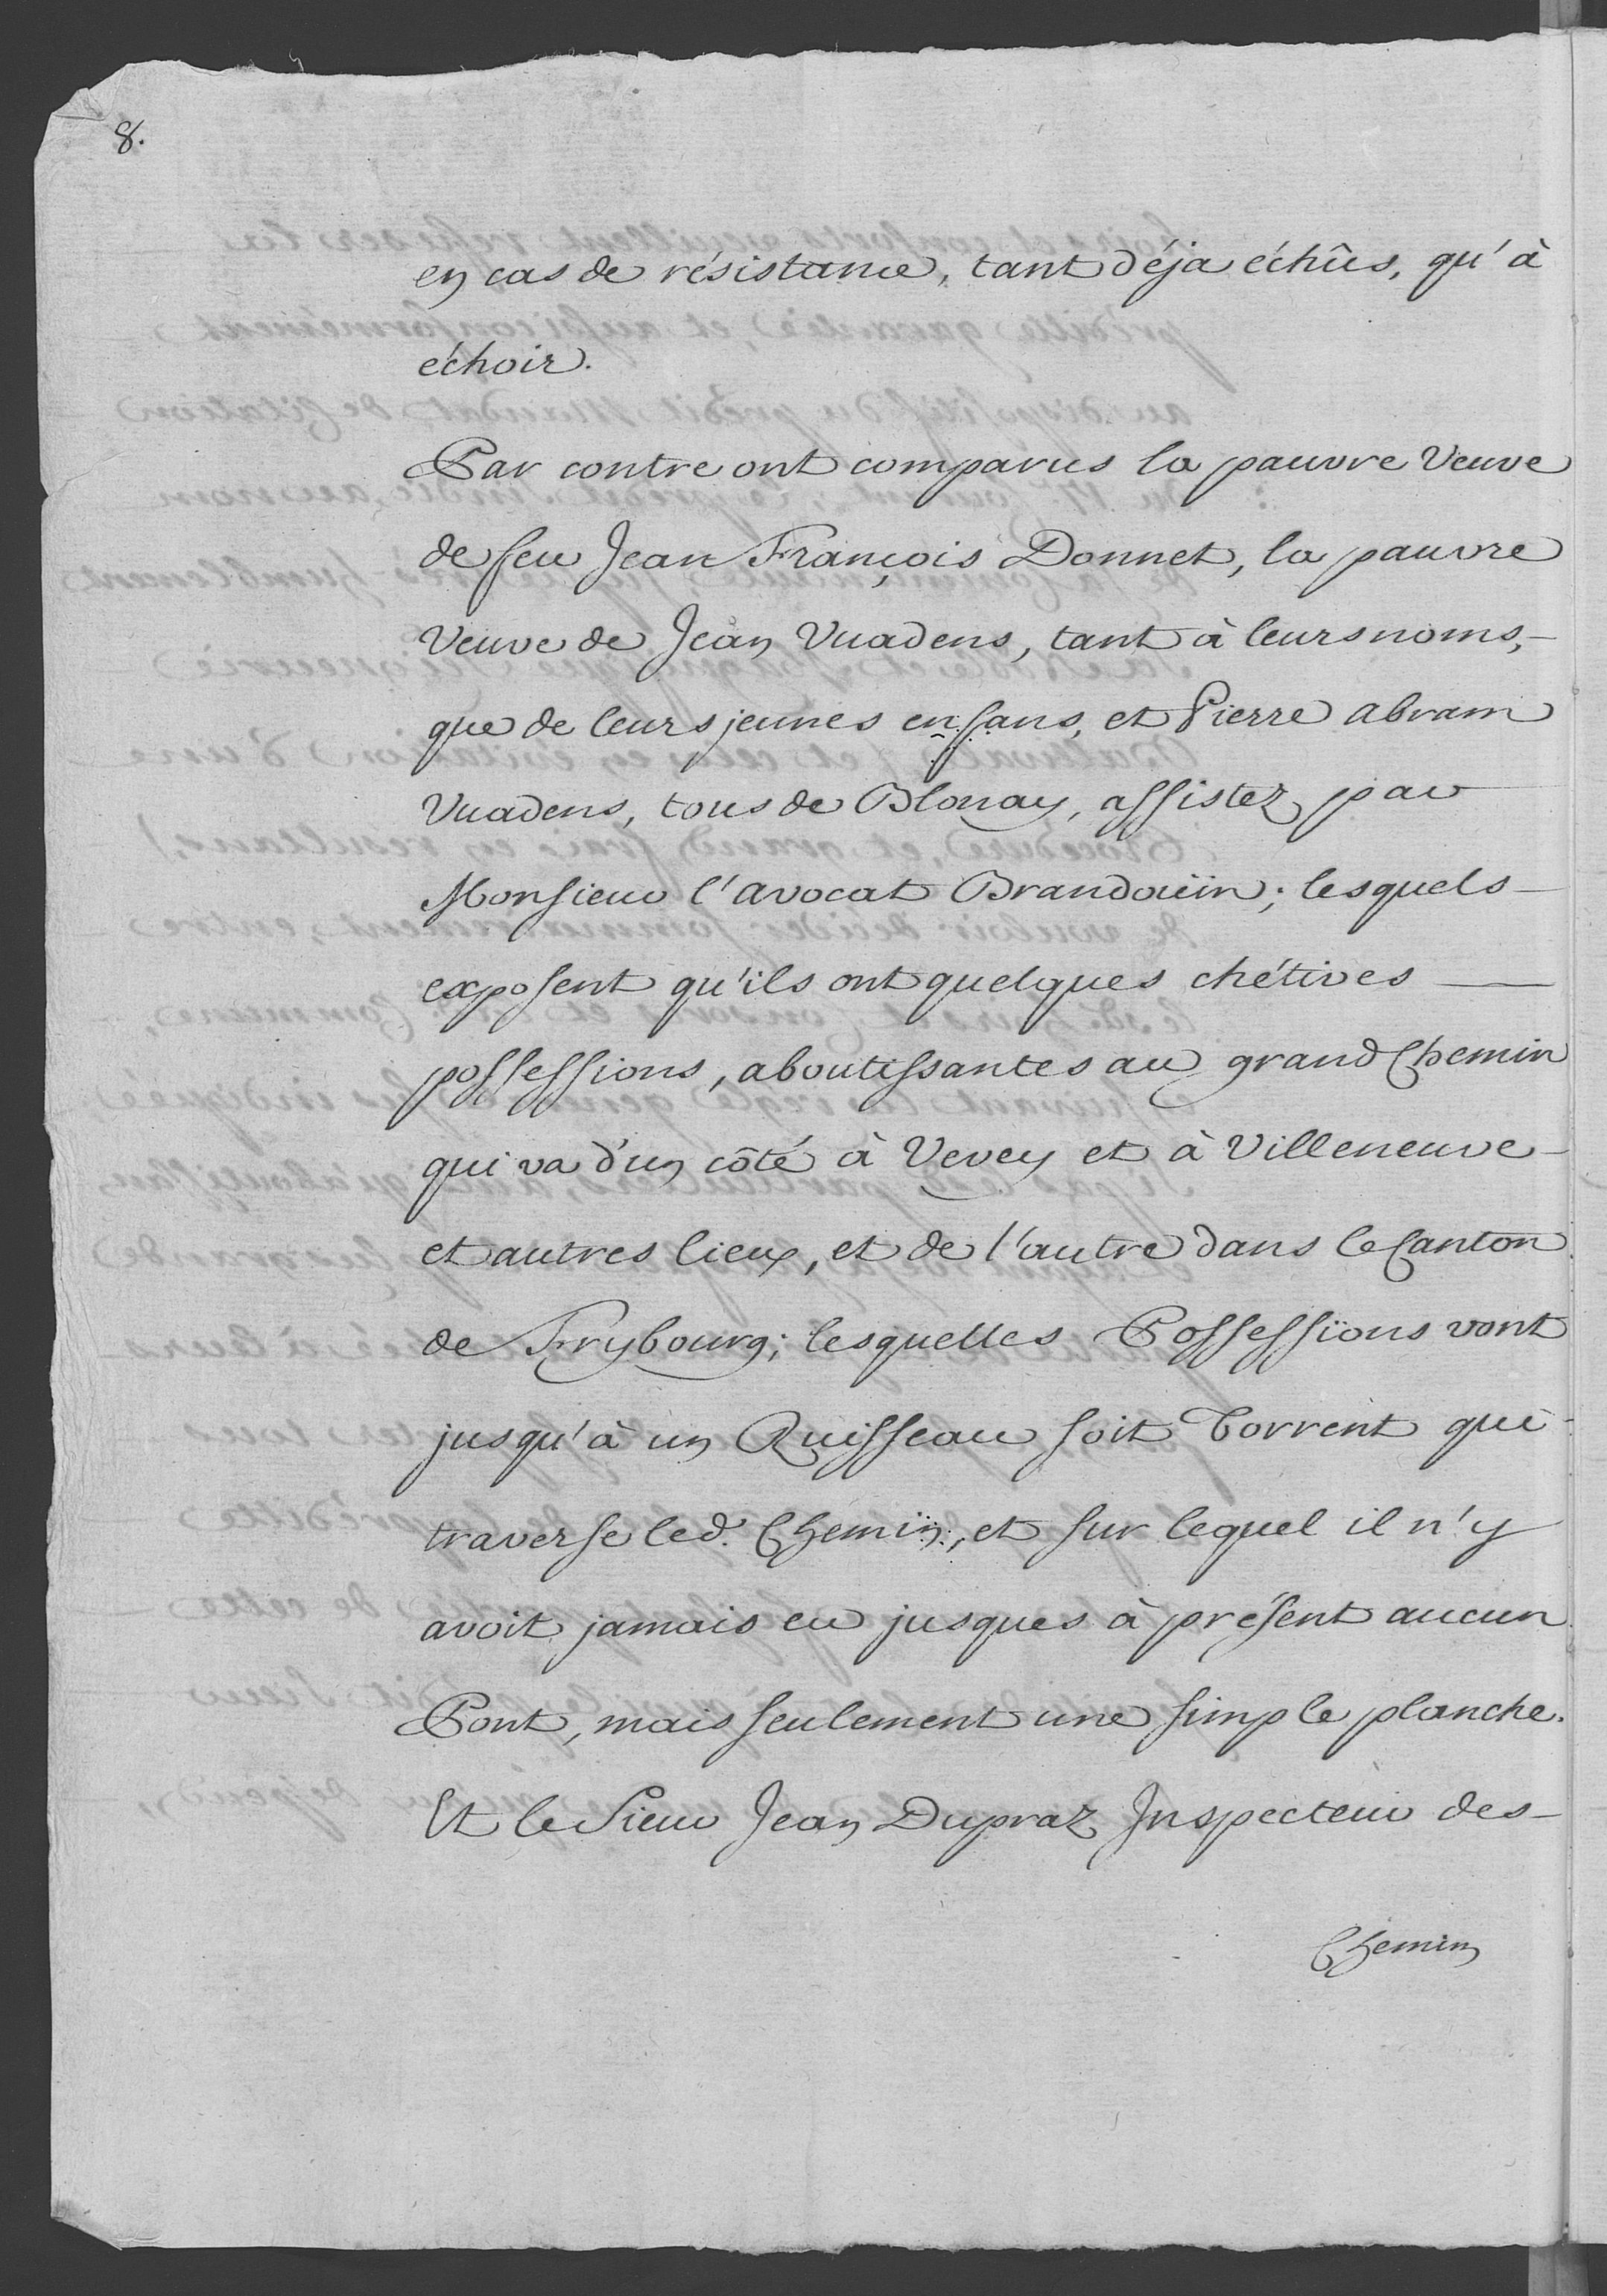 8.
en cas de résistance, tant déja échûs, qu'à
échoir.
Par contre ont comparus la pauvre Veuve
de feu Jean François Donnet, la pauvre
Veuve de Jean Vuadens, tant à leurs noms,
que de leurs jeunes enfans, et Pierre abram
Vuadens, tous de Blonay, assistez par
Monsieur l'avocat Brandoüin; lesquels
exposent qu'ils ont quelques chétives
possessions, aboutissantes au grand Chemin
qui va d'un côté à Vevey et à Villeneuve
et autres lieux, et de l'autre dans le Canton
de Frybourg; lesquelles Possessions vont
jusqu'à un Ruisseau soit Torrent qui
traverse led. Chemin, et sur lequel il n'y
avoit jamais eu jusques à présent aucun
Pont, mais seulement une simple planche.
Et le Sieur Jean Dupraz Inspecteur des
Chemin